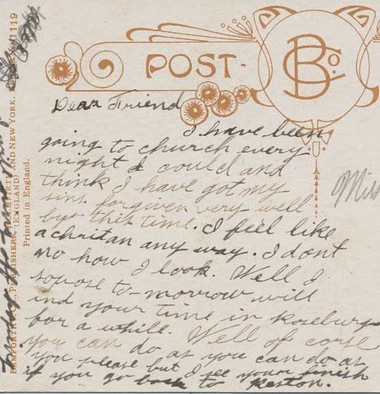 POST-
B Co.
Dear Friend
I have been
going to church every
night I could and
think I have got my
sins forgiven very well
by this time. I feel like
a chritan any way. I dont
no how I look. Well I
sopose to-morrow will
end your time in Roseburg
for a while. Well of corse
you can do as you can do as
you please but I see your finish
if you go back to Reston.
Miss
PUBLISHERS, ENGLAND, AND NEW YORK.
Printed in England.
1119